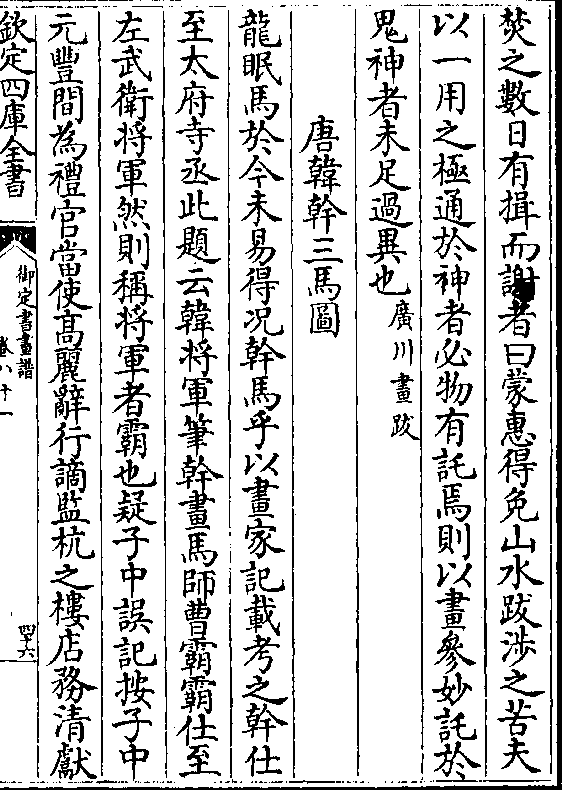 焚之數日有揖而謝者曰蒙惠得免山水跋涉之苦夫
以一用之極通於神者必物有託焉則以畫參妙託於
鬼神者未足過異也廣川畫跋
唐韓幹三馬圖
龍眠馬於今未易得况幹馬乎以畫家記載考之幹仕
至太府寺丞此題云韓將軍筆幹畫馬師曹霸霸仕至
左武衛將軍然則稱將軍者霸也疑子中誤記按子中
元豐間為禮官當使高麗辭行謫監杭之樓店務清獻
欽定四庫全書
御定書畫譜
卷八十一
四十六